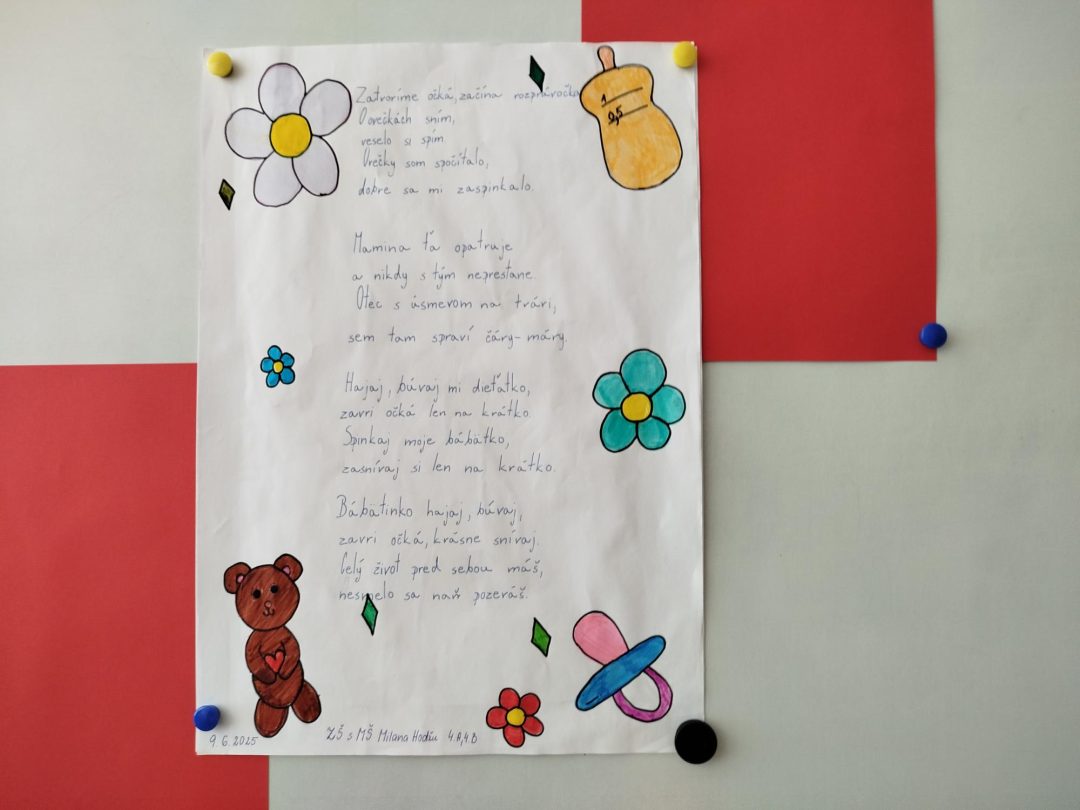 Zatvoríme očká, začína rozprávočka
O ovečkách sním,
veselo si spím.
Ovečky som spočítalo,
dobre sa mi zaspinkalo.
Mamina ťa opatruje
a nikdy s tým neprestane.
Otec s úsmevom na tvári,
sem tam spraví čáry-máry.
Hajaj, búvaj mi dieťatko,
zavri očká len na krátko.
Spinkaj moje bábätko,
zasnívaj si len na krátko.
Bábätinko hajaj, búvaj,
zavri očká, krásne snívaj.
Celý život pred sebou máš,
nesmelo sa naň pozeráš.
1
0,5
9.6.2025
ZŠ s MŠ Milana Hodžu 4.A,4.B